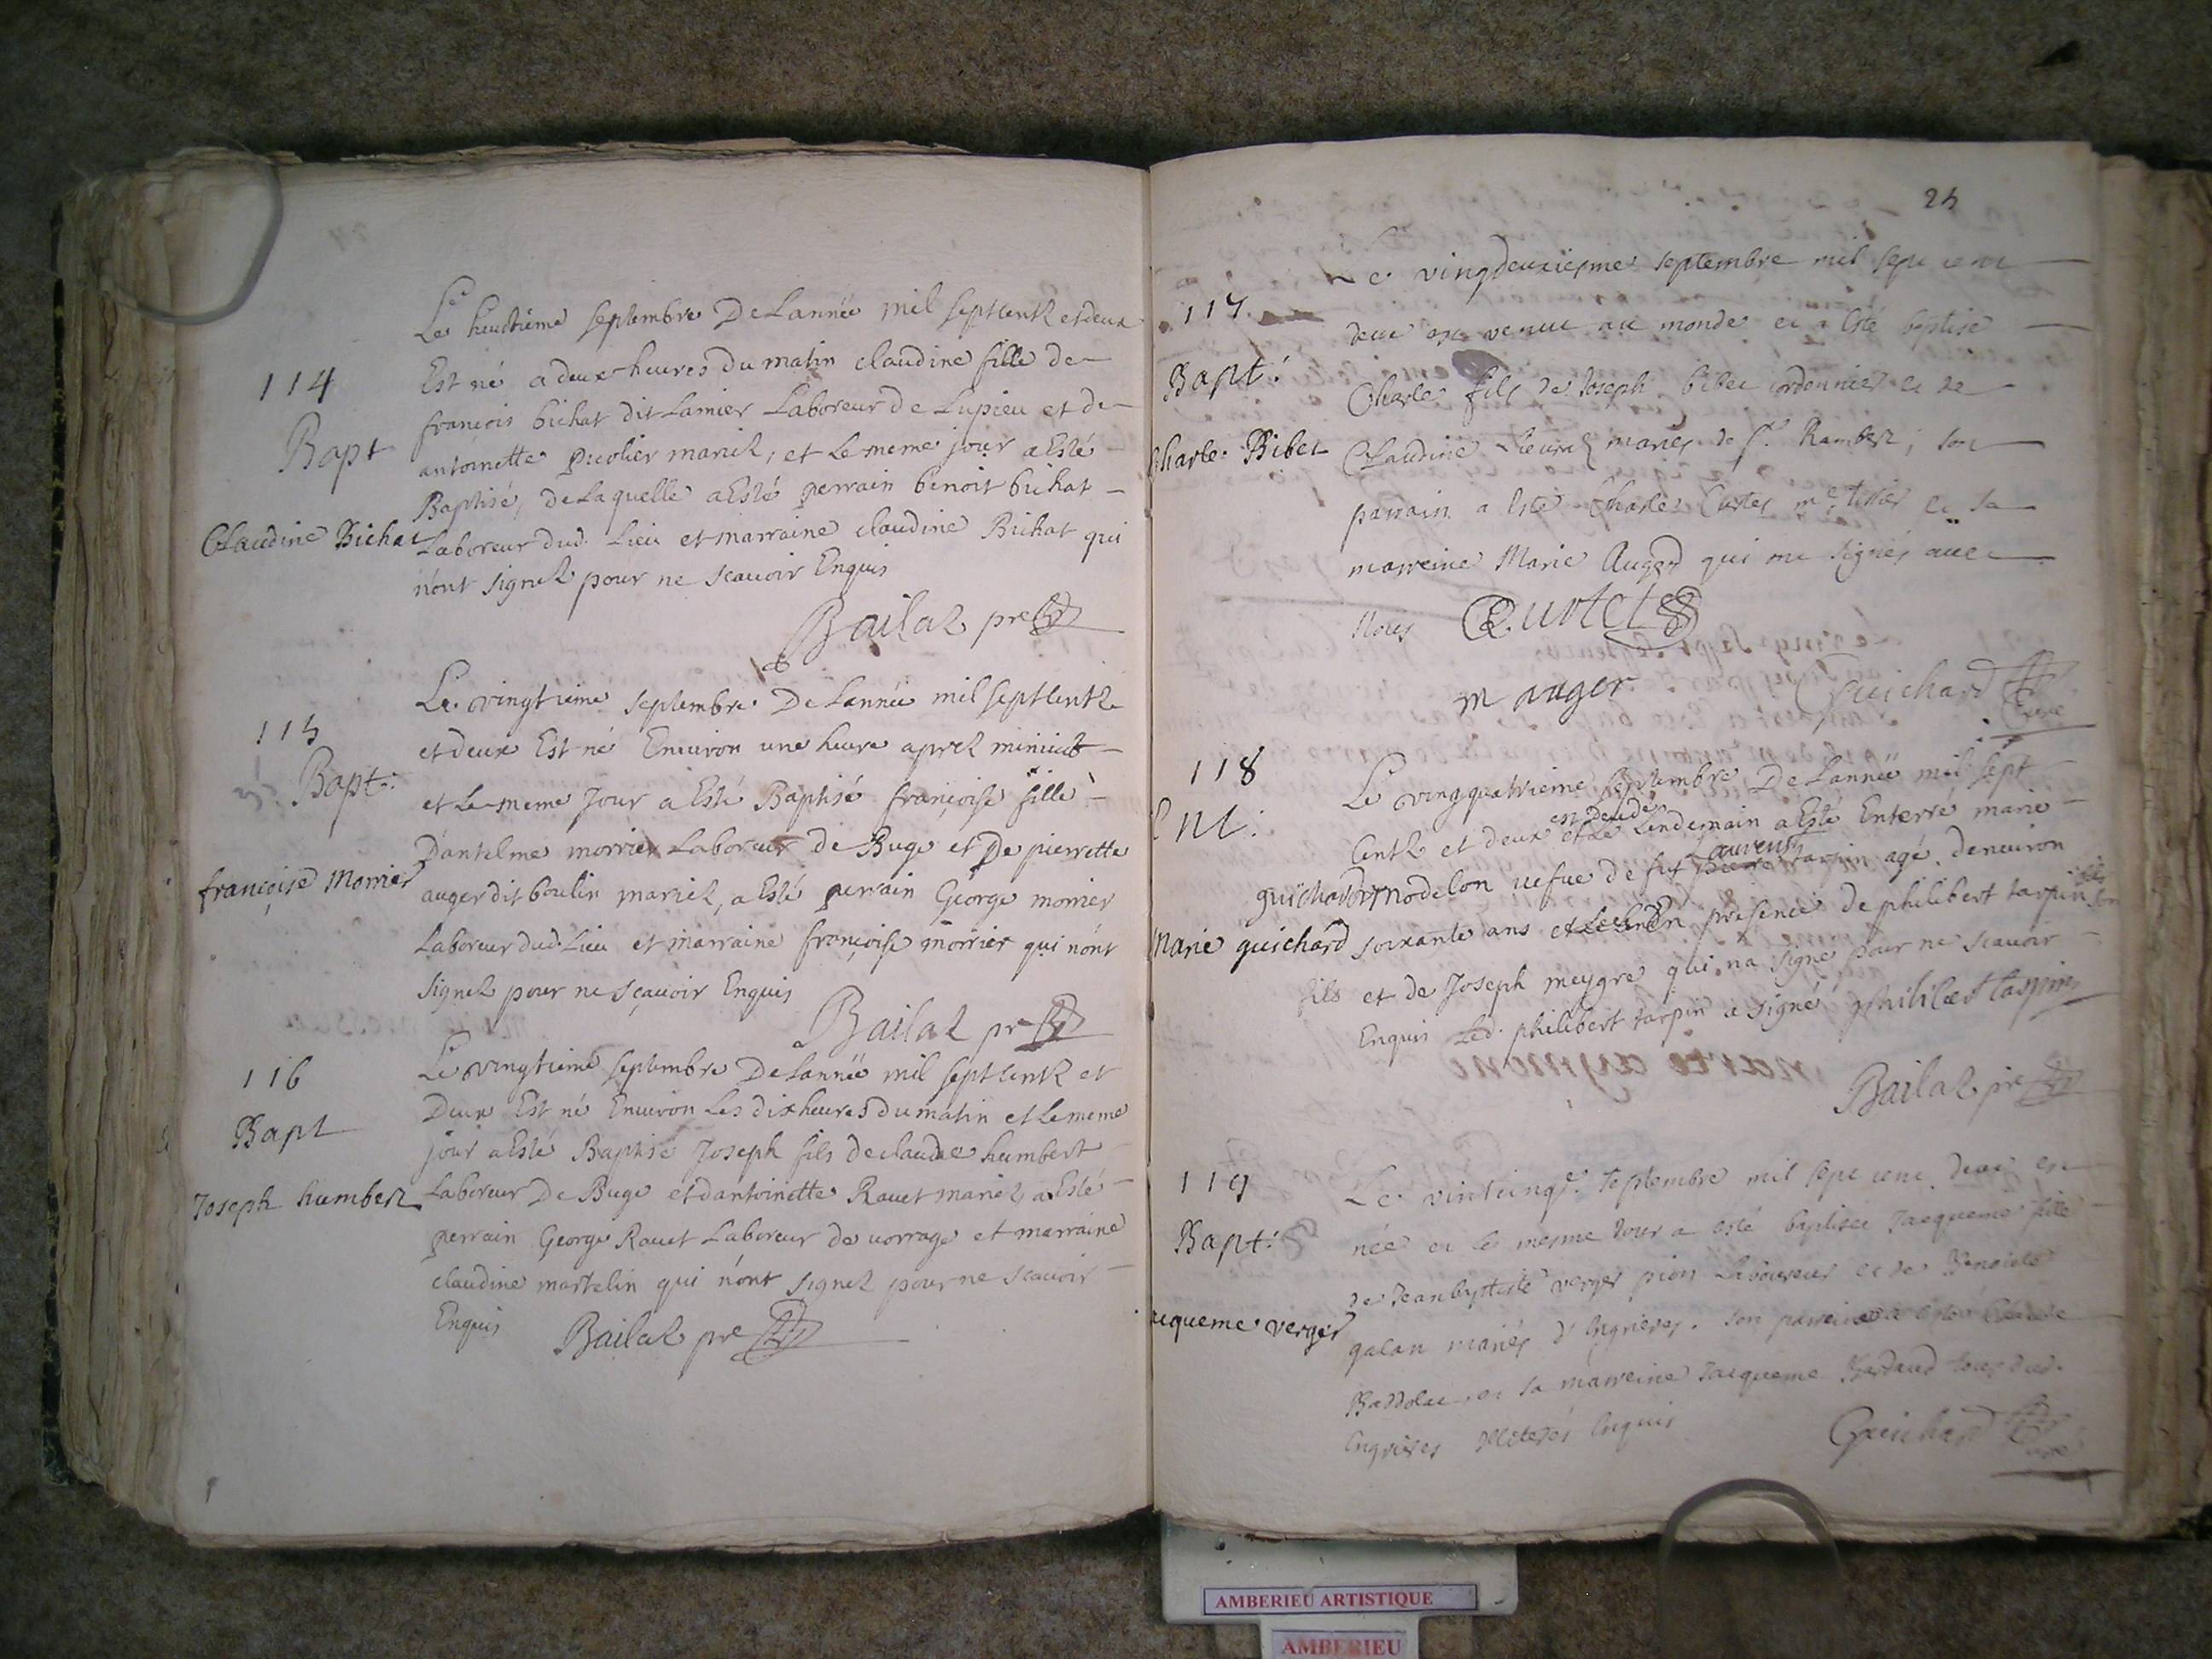 114
Bapt
Claudine Bichat
Le huictieme septembre De Lannée mil septcentz et deux
Est né a deux heures du matin claudine fille de
francois bichat dit Lamier Laboreur de Lupieu et de
antoinette picolier mariez, et Le meme jour a Esté
Baptisé, de Laquelle a Esté perrain benoit bichat
Laboreur dud. Lieu et marraine claudine Bichat qui
n'ont signez pour ne scauoir Enquis
Bailat pre
115
Bapt:
françoise Morrier
Le vingtieme septembre De Lannée mil septcentz
et deux Est né Enuiron une heure aprez minuict
et Le meme Jour a Esté Baptisé françoise fille
Dantelme morrier Laboreur de Buge et De pierrette
auger dit boulin mariez, a Esté perrain George morrier
Laboreur dud. Lieu et marraine françoise morrier qui nont
signez pour ne sçauoir Enquis
Bailat pr
116
Bapt
Joseph humbert
Le vingtieme septembre De Lannée mil septcentz et
Deux Est né Enuiron Les dix heures du matin et Le meme
jour a Esté Baptisé Joseph fils de claude humbert
Laboreur De Buge et dantoinette Rauet mariez a Esté
perrain George Rauet Laboreur de vorrage et marraine
claudine martelin qui n'ont signez pour ne scauoir
Enquis
Bailat pre
25
117
Bapt:
Charle Bibet
Le vingdeuxiesme septembre mil sept cent
deux est venue au monde et a Esté baptisé
Charle fils de Joseph bibet cordonnier et de
Claudine mariés de St Rambert, son
parrain a Esté Charles Curtet me tissier et sa
marreine Marie Auger qui ont signés auec
Nous Curtet
m auger
Guichard
Curé
118
Ent:
Marie guichard
Le vingquatrieme septembre De Lannée mil sept
Centz et deux Lendemain a Esté Enterré marie
guichard modelon uefue de fut Laurens tarpin agé denuiron
soixante ans En presence de philibert tarpin son
fils et de Joseph meygre qui na signé pour ne scauoir
Enquis Led. philibert tarpin a signé philibert tarpin
Bailat pre
119
Bapt:
acqueme verger
Le vintcinqe septembre mil sept cent deux est
née et le mesme Jour a esté baptisée Jacqueme fille
de Jeanbaptiste verger pion Laboureur et de Benoiste
galan mariés d'Ingrieres. son parrein a esté Claude
et sa marreine Jacqueme tous dud.
Ingrieres Illeterés Enquis
Guichard
Curé
AMBERIEU ARTISTIQUE
AMBERIEU